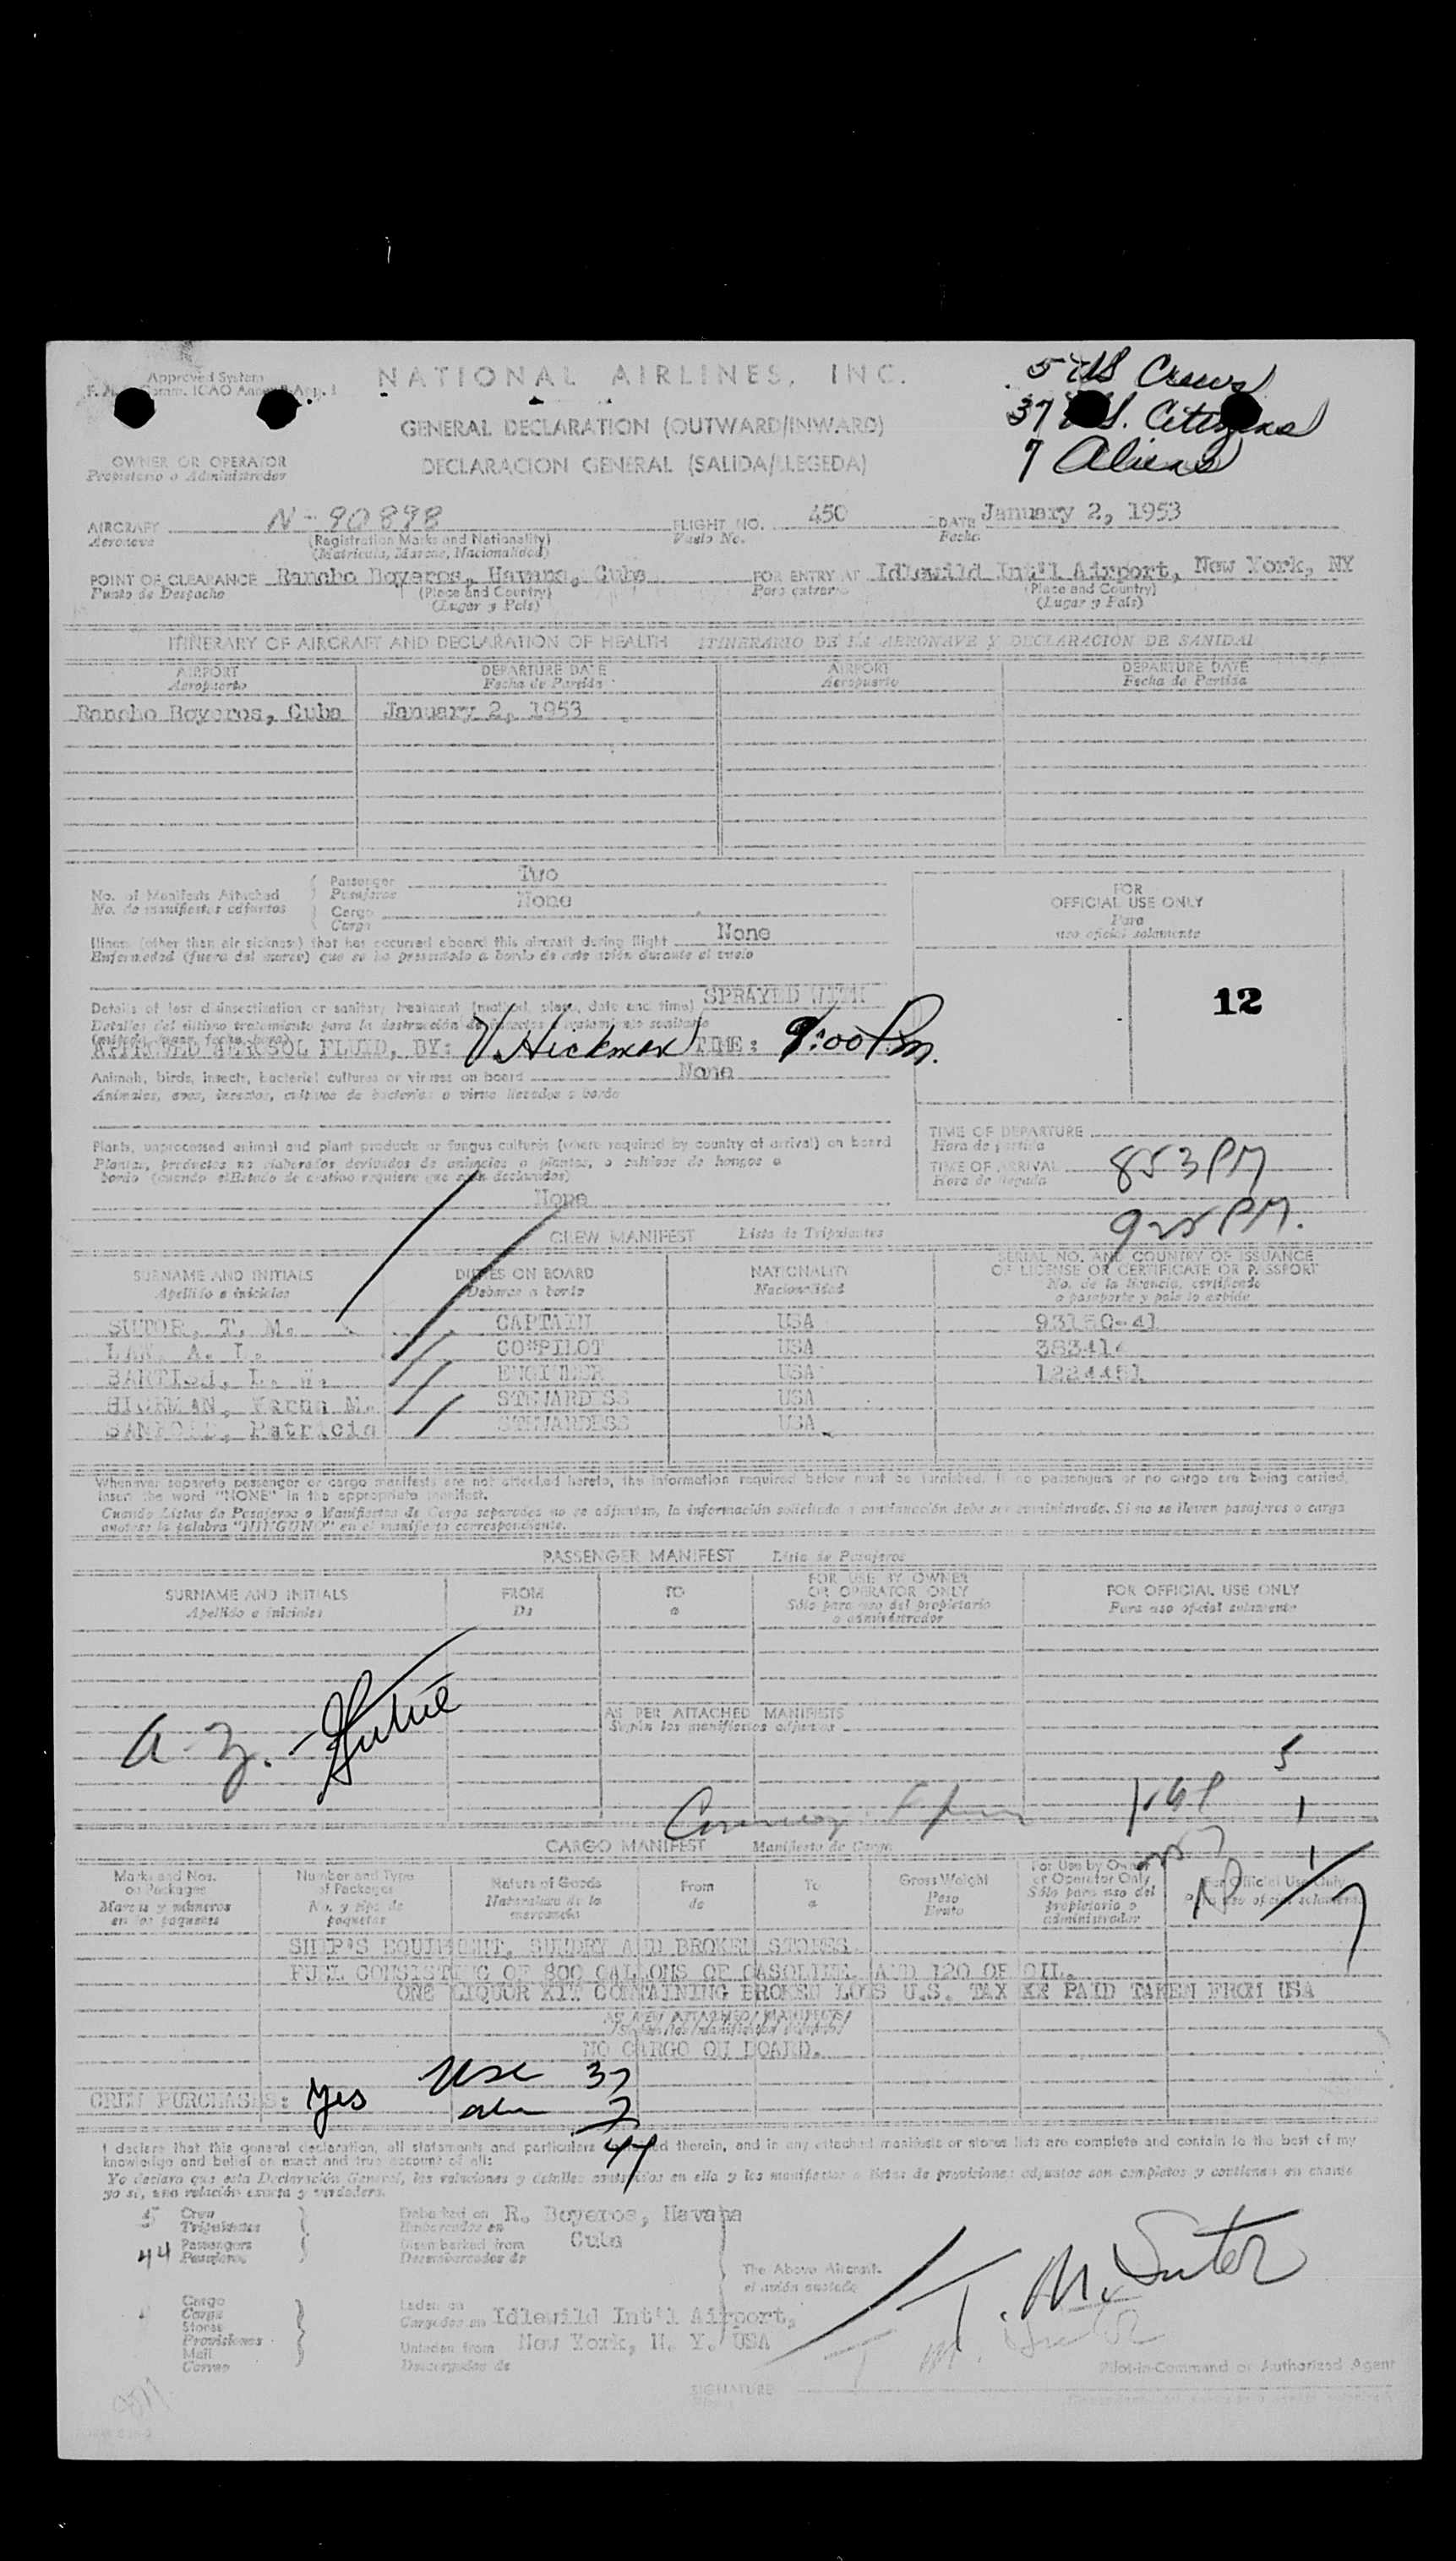 Approved System
NATIONAL AIRLINES, INC.
5 US Crews
37 U.S. Citizens
7 Aliens
GENERAL DECLARATION (OUTWARD/INWARD)
DECLARACION GENERAL (SALIDA/LLEGEDA)
OWNER OR OPERATOR
Propietario o Administrador
AIRCRAFT N-90898 FLIGHT NO. 450 DATE January 2, 1953
Aeronave (Registration Marks and Nationality) Vuelo No. Fecha
(Matricula, Marcas, Nacionalidad)
POINT OF CLEARANCE Rancho Boyeros, Havana, Cuba FOR ENTRY AT Idlewild Int'l Airport, New York, NY
Punto de Despacho (Place and Country) Para entrar (Place and Country)
(Lugar y Pais) (Lugar y Pais)
ITINERARY OF AIRCRAFT AND DECLARATION OF HEALTH ITINERARIO DE LA AERONAVE Y DECLARACION DE SANIDAD
AIRPORT DEPARTURE DATE AIRPORT DEPARTURE DATE
Aeropuerto Fecha de Partida Aeropuerto Fecha de Partida
Rancho Boyeros, Cuba January 2, 1953
No. of Manifests Attached
No. de manifiestos adjuntos
Passenger Two
Pasajeros
Cargo None
Carga
FOR
OFFICIAL USE ONLY
Para
uso oficial solamente
Illness (other than air sickness) that has occurred aboard this aircraft during flight None
Enfermedad (fuera del mareo) que se ha presentado a bordo de este avión durante el vuelo
Details of last disinsectization or sanitary treatment (method, place, date and time) SPRAYED WITH
12
AEROSOL FLUID, BY: V. Hickman TIME: 9:00 Pm.
Animals, birds, insects, bacterial cultures or viruses on board None
Animales, aves, insectos, cultivos de bacterias o virus llevados a bordo
Plants, unprocessed animal and plant products or fungus cultures (where required by country of arrival) on board
Plantas, productos no elaborados derivados de animales o plantas, o cultivos de hongos a
bordo (cuando el Estado de destino requiere que sean declarados)
None
TIME OF DEPARTURE
Hora de partida
TIME OF ARRIVAL 853 PM
Hora de llegada
925 PM.
CREW MANIFEST Lista de Tripulantes
SURNAME AND INITIALS DUTIES ON BOARD NATIONALITY SERIAL NO. AND COUNTRY OF ISSUANCE
OF LICENSE OR CERTIFICATE OR PASSPORT
Apellido e iniciales Deberes a bordo Nacionalidad No. de la licencia, certificado
o pasaporte y pais lo expide
SUTOR, T. M. CAPTAIN USA 93150-41
LAW, A. COPILOT USA 383414
L. ENGINEER USA 1224451
HICKMAN, M. STEWARDESS USA
Patricia STEWARDESS USA
Whenever separate passenger or cargo manifests are not attached hereto, the information required below must be furnished. If no passengers or no cargo are being carried,
insert the word "NONE" in the appropriate manifest.
Cuando Listas de Pasajeros o Manifiestos de Carga separados no se adjuntan, la información solicitada a continuación debe ser suministrada. Si no se lleven pasajeros o carga
anotese la palabra "NINGUNO" en el manifiesto correspondiente.
PASSENGER MANIFEST Lista de Pasajeros
SURNAME AND INITIALS FROM TO FOR USE BY OWNER
OR OPERATOR ONLY FOR OFFICIAL USE ONLY
Apellido e iniciales De a Sólo para uso del propietario
o administrador Para uso oficial solamente
AS PER ATTACHED MANIFESTS
Según los manifiestos adjuntos
5
1
1
7
CARGO MANIFEST Manifiesto de Carga
Marks and Nos.
on Packages
Marcas y números
en los paquetes
Number and Type
of Packages
No. y tipo de
paquetes
Nature of Goods
Naturaleza de la
mercancía
From
de
To
a
Gross Weight
Peso
Bruto
For Use by Owner
or Operator Only
Sólo para uso del
propietario o
administrador
For Official Use Only
SHIP'S EQUIPMENT, SUNDRY AND BROKEN STORES
FUEL CONSISTING OF 800 GALLONS OF GASOLINE AND 120 OF OIL.
ONE LIQUOR KIT CONTAINING BROKEN LOTS U.S. TAX PAID TAKEN FROM USA
NO CARGO ON BOARD.
USC 37
CREW PURCHASES: Yes
7
44
I declare that this general declaration, all statements and particulars contained therein, and in any attached manifests or stores lists are complete and contain to the best of my
knowledge and belief an exact and true account of all:
5 Crew
Tripulantes
44 Passengers
Pasajeros
Embarked on R. Boyeros, Havana
Embarcados en Cuba
Disembarked from
Desembarcados de
Cargo
Carga
Stores
Provisiones
Mail
Correo
Laden on Idlewild Int'l Airport,
Cargados en
Unladen from New York, N. Y. USA
Descargados de
The Above Aircraft.
el avión anotado
T. M. Sutor
Pilot-in-Command or Authorized Agent
SIGNATURE